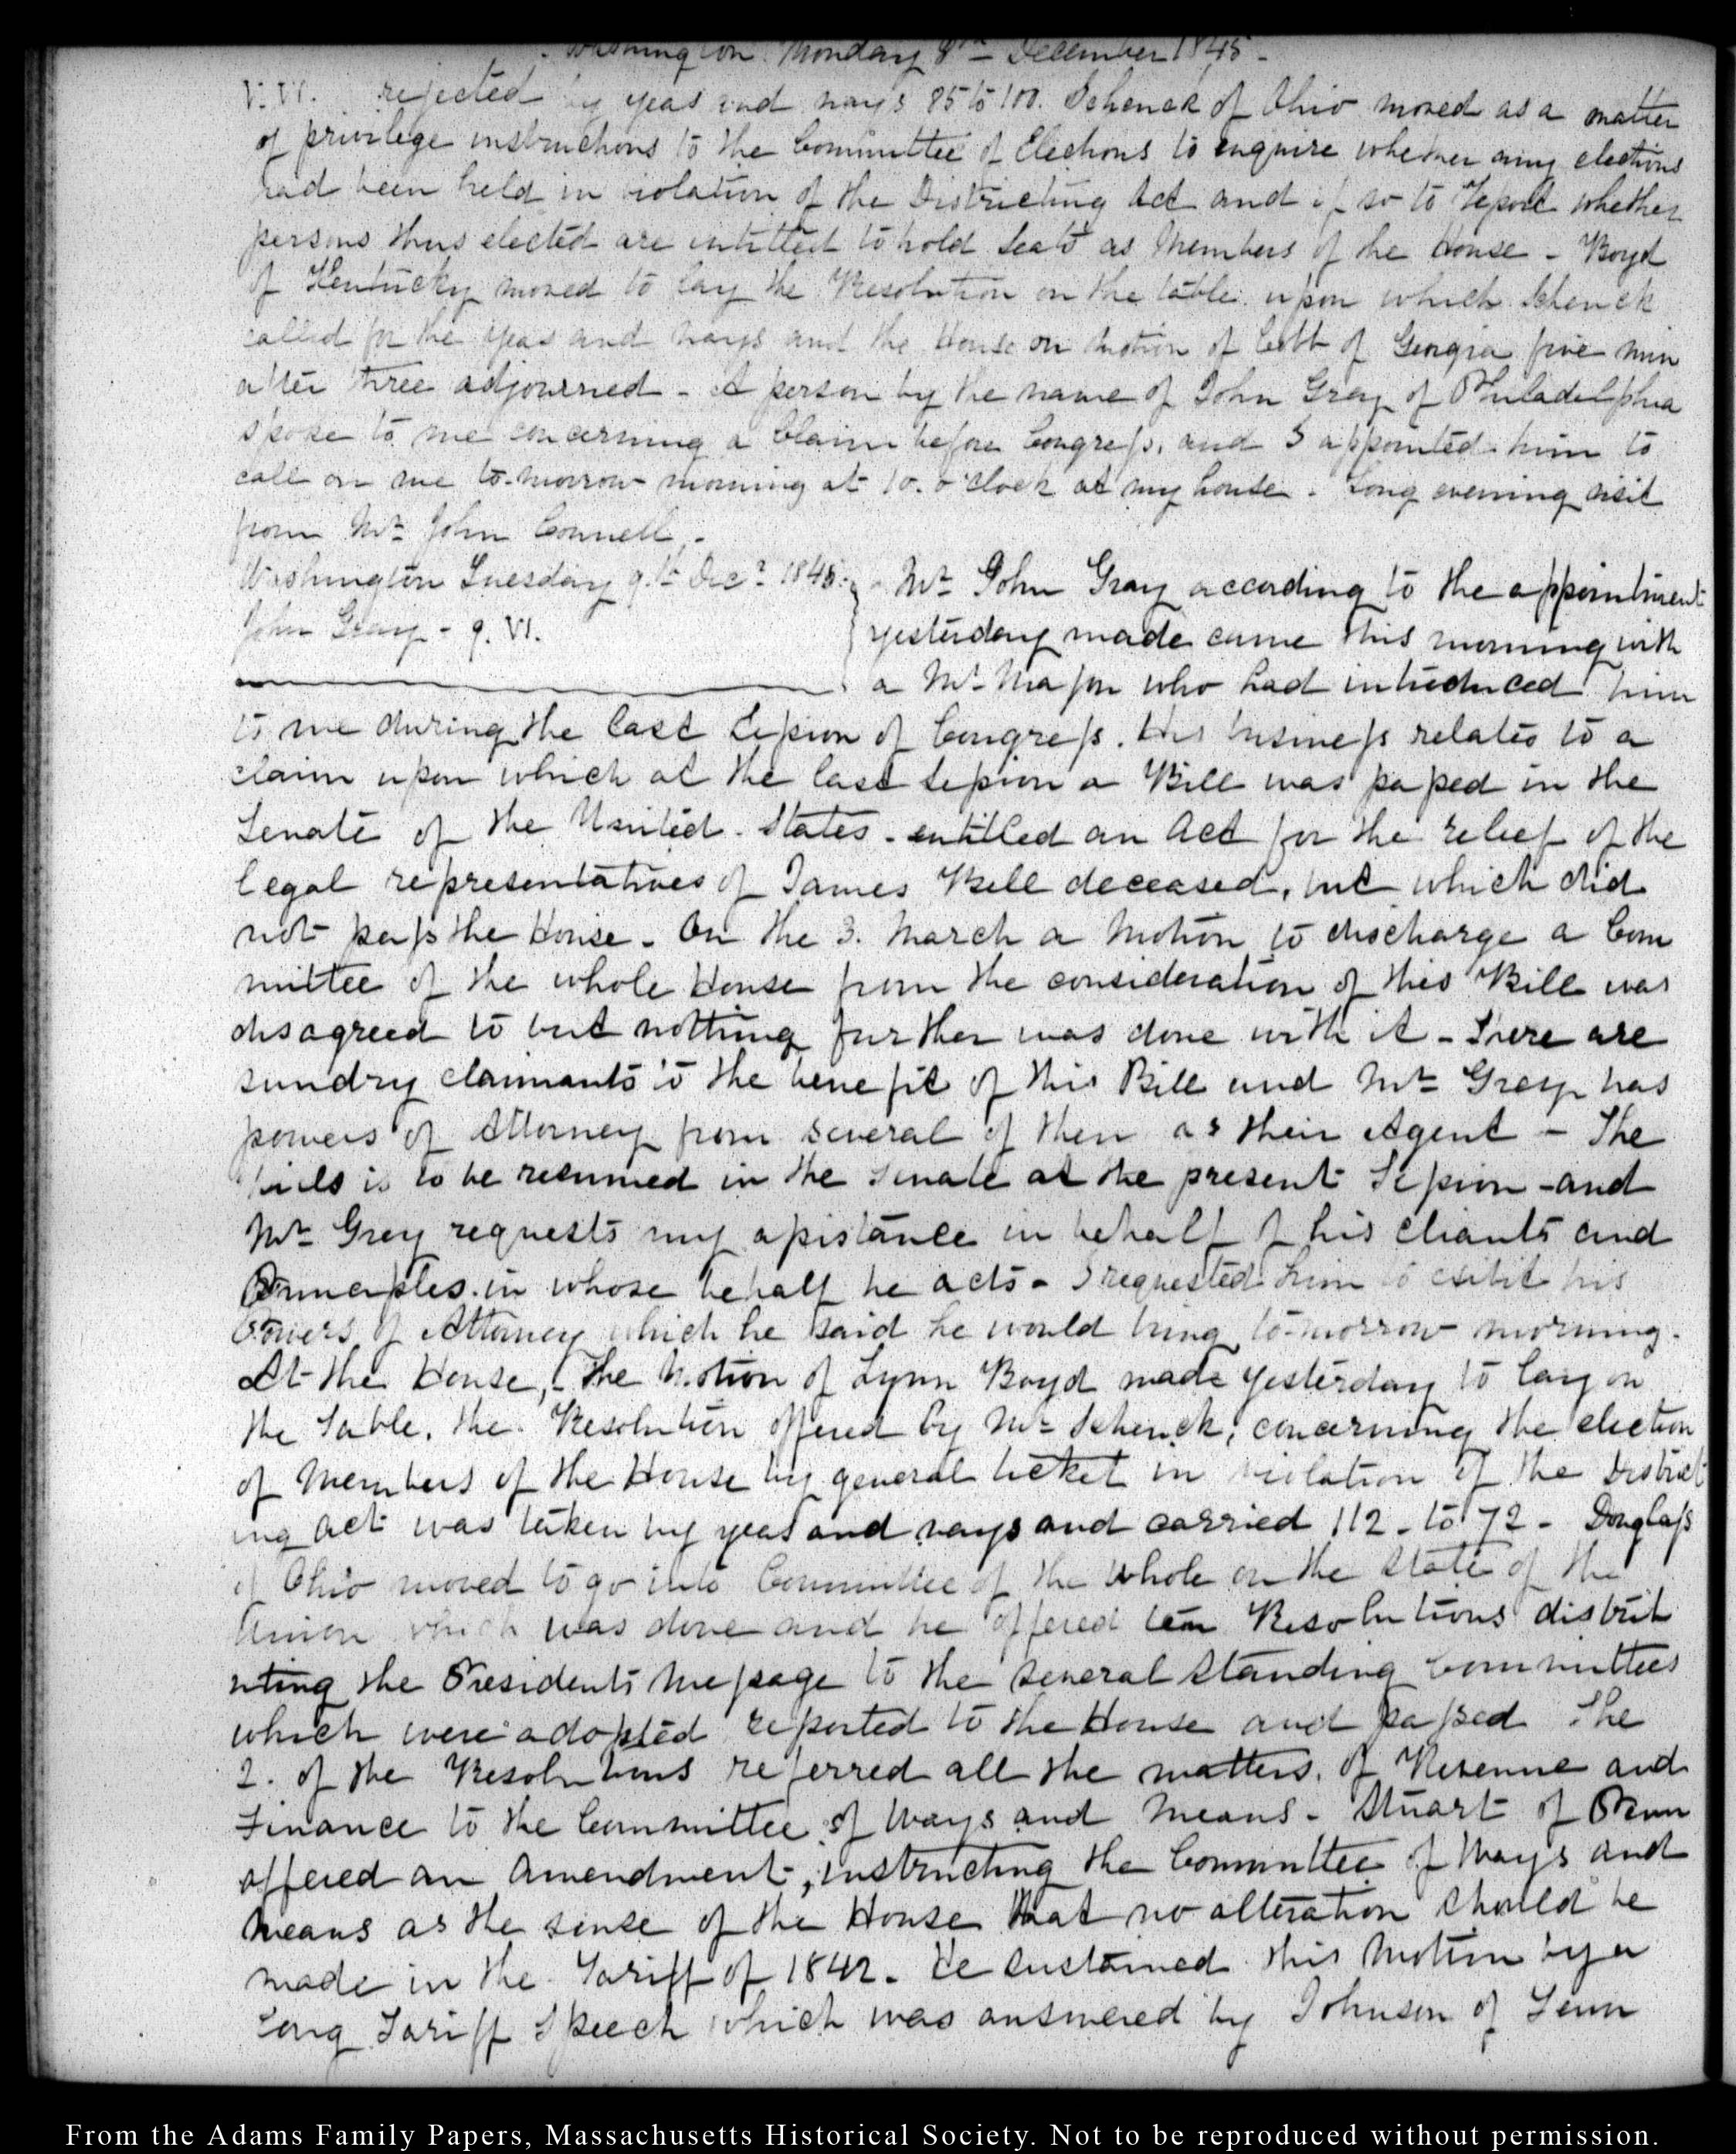 Washington Monday 8th December 1845.
V. VI. rejected by yeas and nays 85 to 100. Schenck of Ohio moved as a matter
of privilege instructions to the Committee of Elections to enquire whether any elections
had been held in violation of the Districting Act and if so to report whether
persons thus elected are intitled to hold seats as Members of the House - Boyd
of Kentucky moved to lay the Resolution on the table. upon which Schenck
called for the yeas and nays and the House on motion of Cobb of Georgia five min
after three adjourned - A person by the name of John Gray of Philadelphia
spoke to me concerning a Claim before Congress, and I appointed him to
call on me to-morrow morning at 10. o'clock at my house. Long evening visit
from Mr John Connell.-
Washington Tuesday 9th Decr 1845.
John Gray - 9. VI.
Mr John Gray according to the appointment
yesterday made came this morning with
a Mr Major who had introduced him
to me during the last Session of Congress. His business relates to a
claim upon which at the last Session a Bill was passed in the
Senate of the United States - entitled an Act for the relief of the
legal representatives of James Bell deceased, but which did
not pass the House. On the 3. March a Motion to discharge a Com
mittee of the whole House from the consideration of this Bill was
disagreed to but nothing further was done with it - There are
sundry claimants to the benefit of this Bill and Mr Gray has
powers of Attorney from several of them as their Agent - The
is to be resumed in the Senate at the present Session - and
Mr Grey requests my assistance in behalf of his Clients and
Principles in whose behalf he acts - I requested him to exibit his
Powers of Attorney which he said he would bring to-morrow morning.
At the House, the Motion of Lynn Boyd made yesterday to lay on
the Table, the Resolution offered by Mr Schenck, concerning the election
of Members of the House by general ticket in violation of the District
ing Act was taken by yeas and nays and carried 112 - to 72 - Douglass
of Ohio moved to go into Committee of the Whole on the State of the
Union which was done and he offered ten Resolutions distrib
uting the Presidents Message to the several Standing Committees
which were adopted reported to the House and passed The
2. of the Resolutions referred all the matters of Revenue and
Finance to the Committee of Ways and Means - Stuart of Penn
offered an Amendment, instructing the Committee of Ways and
Means as the sense of the House that no alteration should be
made in the Tariff of 1842. He sustained this Motion by a
long Tariff Speech which was answered by Johnson of Tenn
From the Adams Family Papers, Massachusetts Historical Society. Not to be reproduced without permission.